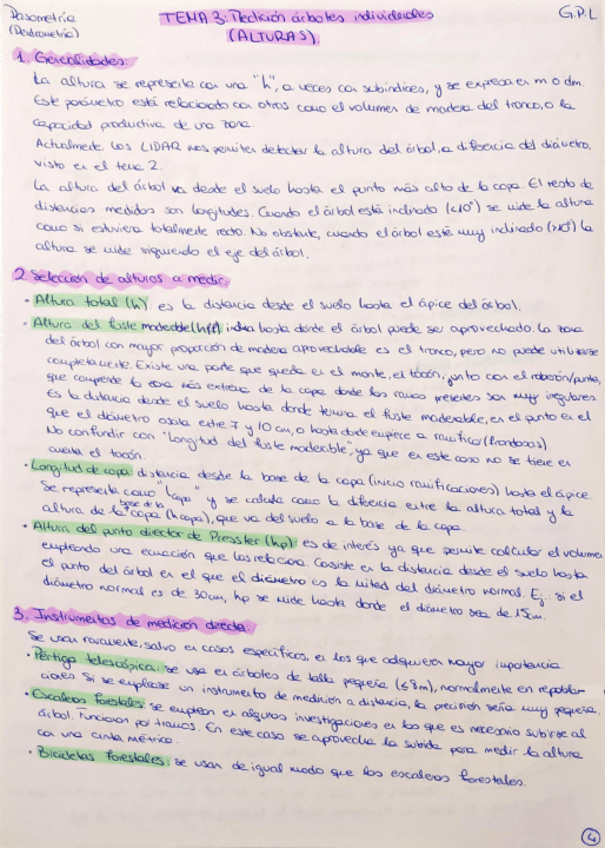 Dasometría
(Dendrometría)
TEMA 3: Medición árboles individuales
(ALTURAS)
G.P.L
1. Generalidades:
La altura se representa con una "h", a veces con subíndices, y se expresa en m o dm.
Este parámetro está relacionado con otros como el volumen de madera del tronco, o la
capacidad productiva de una zona.
Actualmente los LIDAR nos permiten detectar la altura del árbol, a diferencia del diámetro,
visto en el tema 2.
La altura del árbol va desde el suelo hasta el punto más alto de la copa. El resto de
distancias medidas son longitudes. Cuando el árbol está inclinado (<10°) se mide la altura
como si estuviera totalmente recto. No obstante, cuando el árbol esté muy inclinado (>10°) la
altura se mide siguiendo el eje del árbol.
2. Selección de alturas a medir:
· Altura total (h): es la distancia desde el suelo hasta el ápice del árbol.
· Altura del fuste maderable (hff): indica hasta dónde el árbol puede ser aprovechado. La zona
del árbol con mayor proporción de madera aprovechable es el tronco, pero no puede utilizarse
completamente. Existe una parte que queda en el monte, el tocón, junto con el raberón/punta,
que comprende la zona más extrema de la copa donde las ramas presentes son muy irregulares.
Es la distancia desde el suelo hasta donde termina el fuste maderable, en el punto en el
que el diámetro oscila entre 7 y 10 cm, o hasta donde empiece a ramificar (frondosas)
No confundir con "longitud del fuste maderable", ya que en este caso no se tiene en
cuenta el tocón.
· Longitud de copa: distancia desde la base de la copa (inicio ramificaciones) hasta el ápice.
Se representa como "lcopa" y se calcula como la diferencia entre la altura total y la
altura de la base de la copa (hcopa), que va del suelo a la base de la copa.
· Altura del punto director de Pressler (hp): es de interés ya que permite calcular el volumen
empleando una ecuación que los relaciona. Consiste en la distancia desde el suelo hasta
el punto del árbol en el que el diámetro es la mitad del diámetro normal. Ej.: si el
diámetro normal es de 30cm, hp se mide hasta donde el diámetro sea de 15cm.
3. Instrumentos de medición directa:
Se usan raramente, salvo en casos específicos, en los que adquieren mayor importancia.
· Pértiga telescópica: se usa en árboles de talla pequeña (≤8m), normalmente en repobla-
ciones. Si se emplease un instrumento de medición a distancia, la precisión sería muy pequeña.
· Escaleras forestales: se emplean en algunas investigaciones en las que es necesario subirse al
árbol. Funcionan por tramos. En este caso se aprovecha la subida para medir la altura
con una cinta métrica.
· Bicicletas forestales: se usan de igual modo que las escaleras forestales.
4